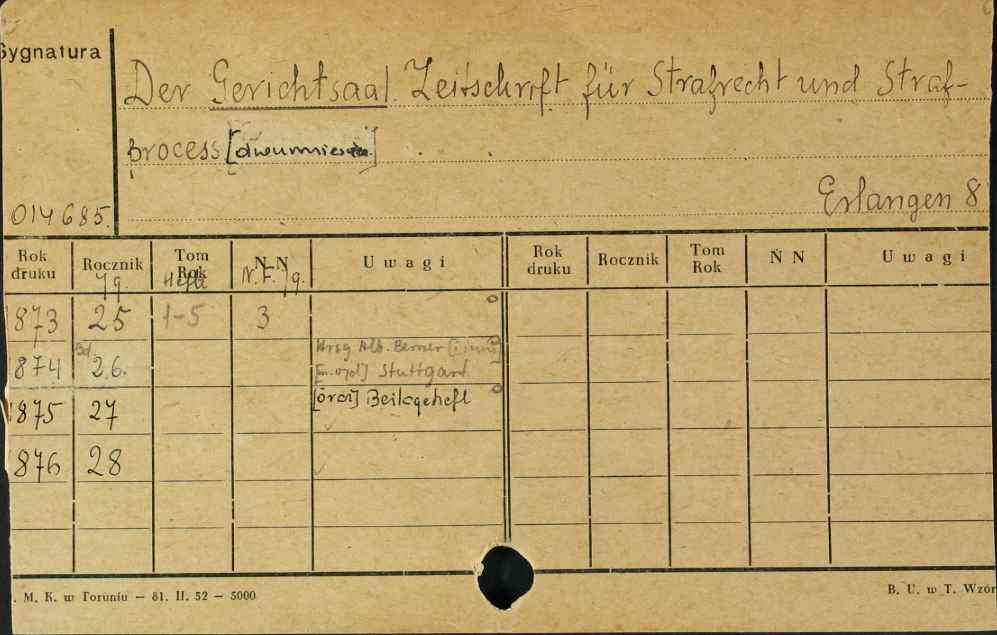 Sygnatura
Der Gerichtsaal. Zeitschrift für Strafrecht und Straf-
process [dwumies.]
014685.
Erlangen 8
Rok druku Rocznik Tom Rok N N Uwagi Rok druku Rocznik Tom Rok N N Uwagi
Jg. Hefte N. F. Jg.
1873 25 1-5 3
1874 Bd. 26. Hrsg Alb. Berner [i inni]
[m. wyd] Stuttgart
1875 27 [oraz] Beilageheft
1876 28
. M. K. w Toruniu — 81. II. 52 — 5000
B. U. w T. Wzór